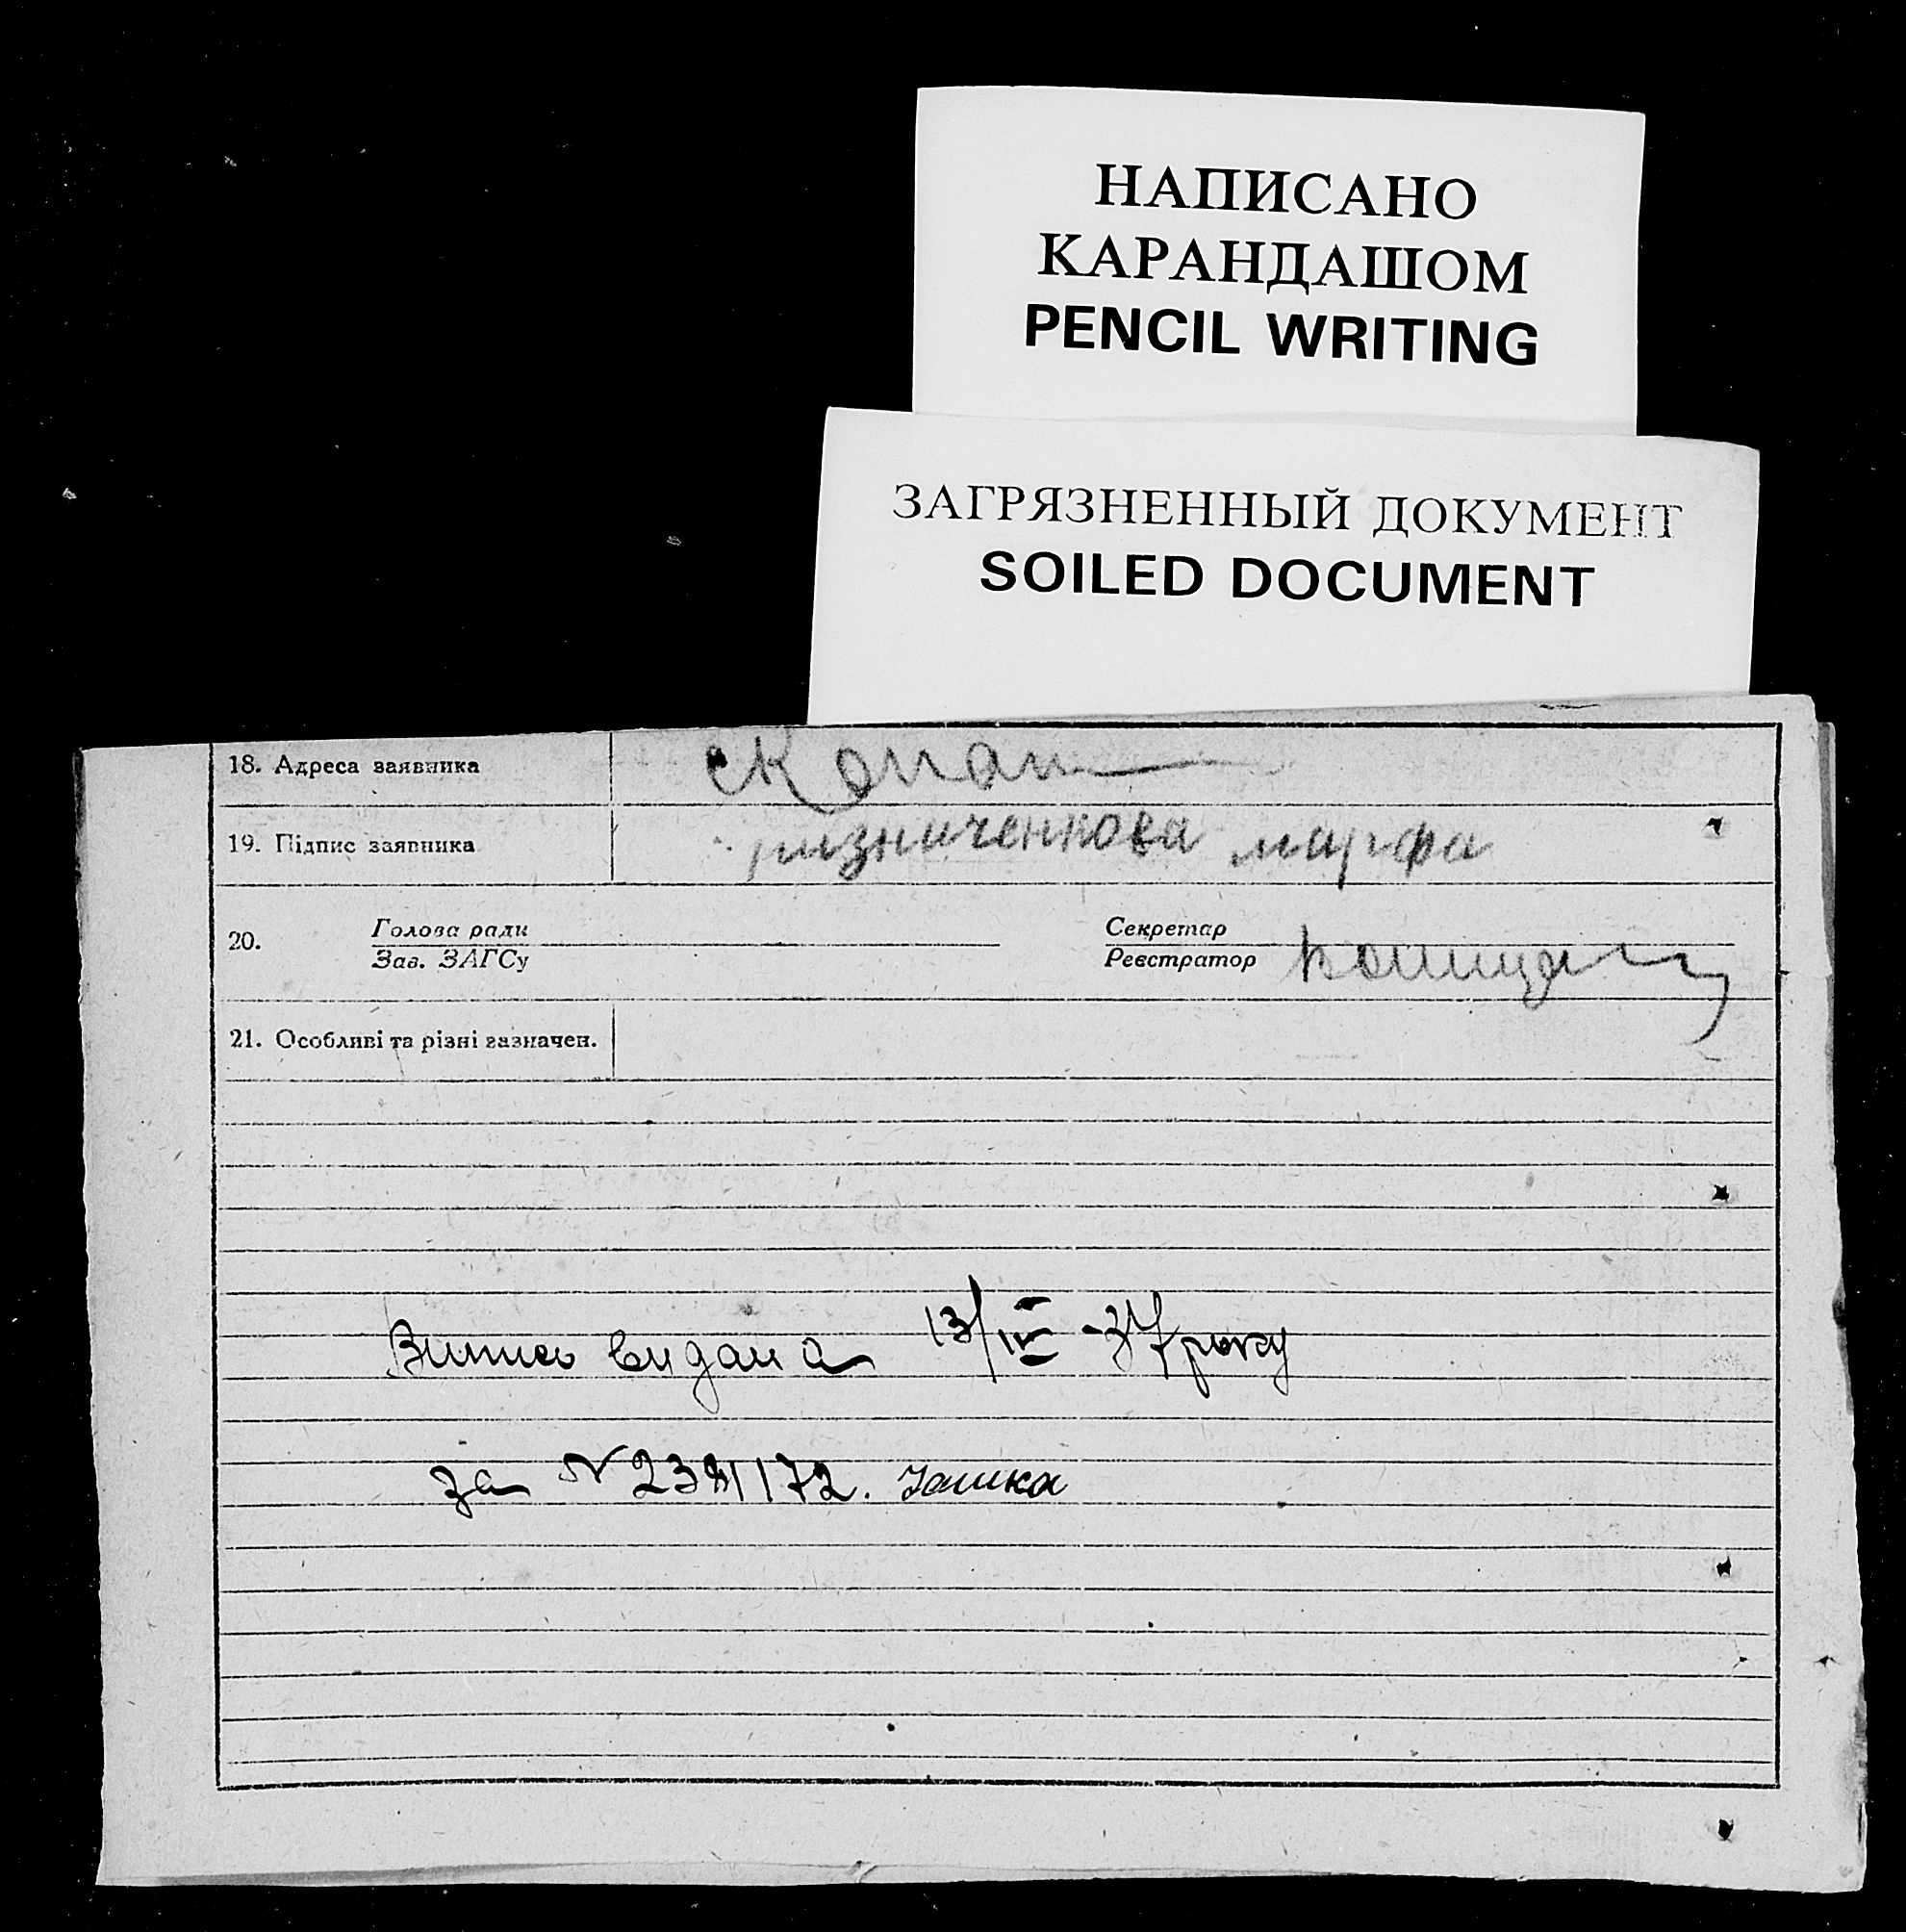 НАПИСАНО
КАРАНДАШОМ
PENCIL WRITING
ЗАГРЯЗНЕННЫЙ ДОКУМЕНТ
SOILED DOCUMENT
18. Адреса заявника
19. Підпис заявника ризниченкова марфа
20. Голова ради Секретар
Зав. ЗАГСу Реєстратор
21. Особливі та різні зазначен.
Випись видана 13/IV-37 року
за №